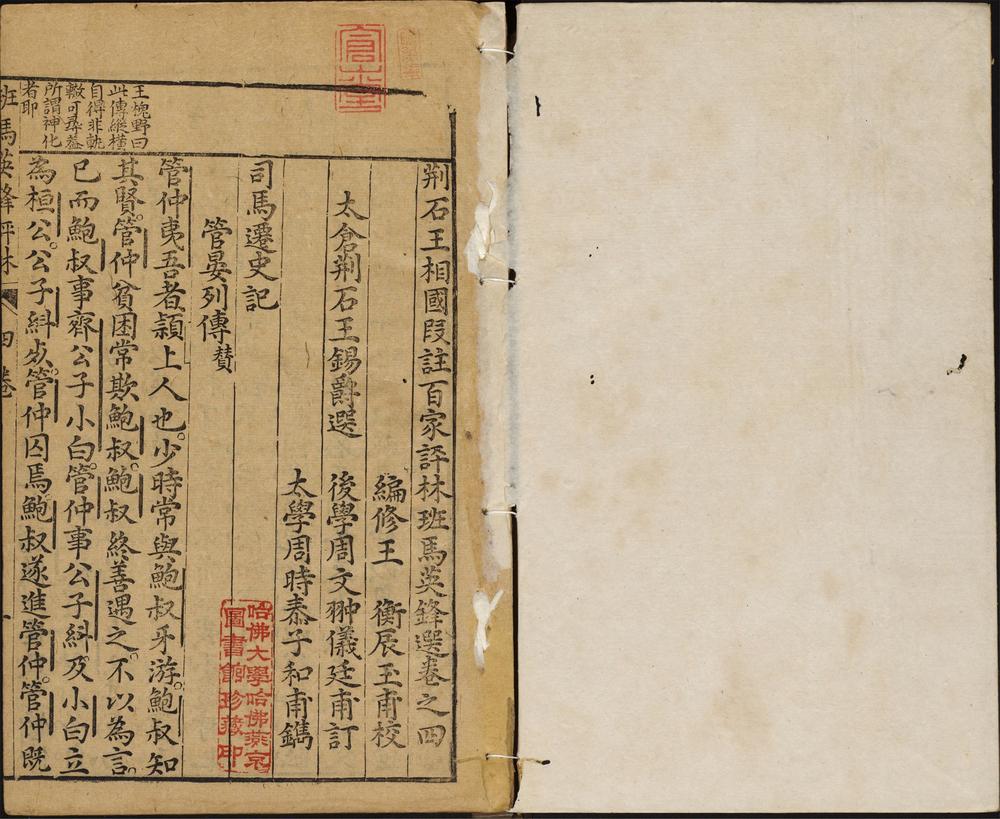 荆石王相國叚註百家評林班馬英鋒選卷之四
編修王　衡辰玉甫校
太倉荆石王錫爵選　後學周文翀儀廷甫訂
太學周時泰子和甫鐫
司馬遷史記
管晏列傳贊
管仲夷吾者潁上人也少時常與鮑叔牙游鮑叔知
其賢管仲貧困常欺鮑叔鮑叔終善遇之不以為言
已而鮑叔事齊公子小白管仲事公子糾及小白立
為桓公公子糾死管仲囚焉鮑叔遂進管仲管仲既
王槐野曰
此傳縱橫
自得非軌
轍可尋葢
所謂神化
者耶
班馬英鋒評林　四卷
哈佛大學哈佛燕京
圖書館珍藏印